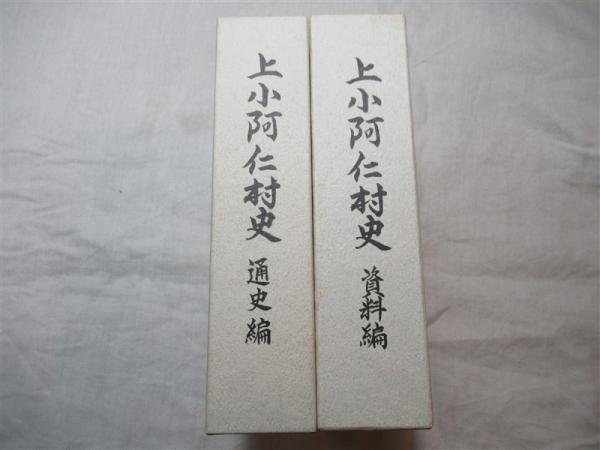 上小阿仁村史 通史編
上小阿仁村史 資料編